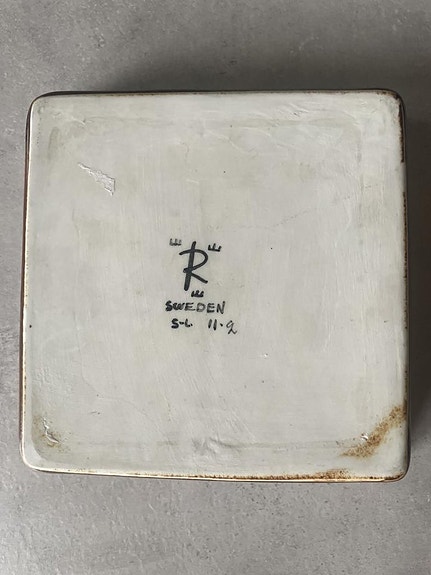 R
SWEDEN
S-L. 11-2